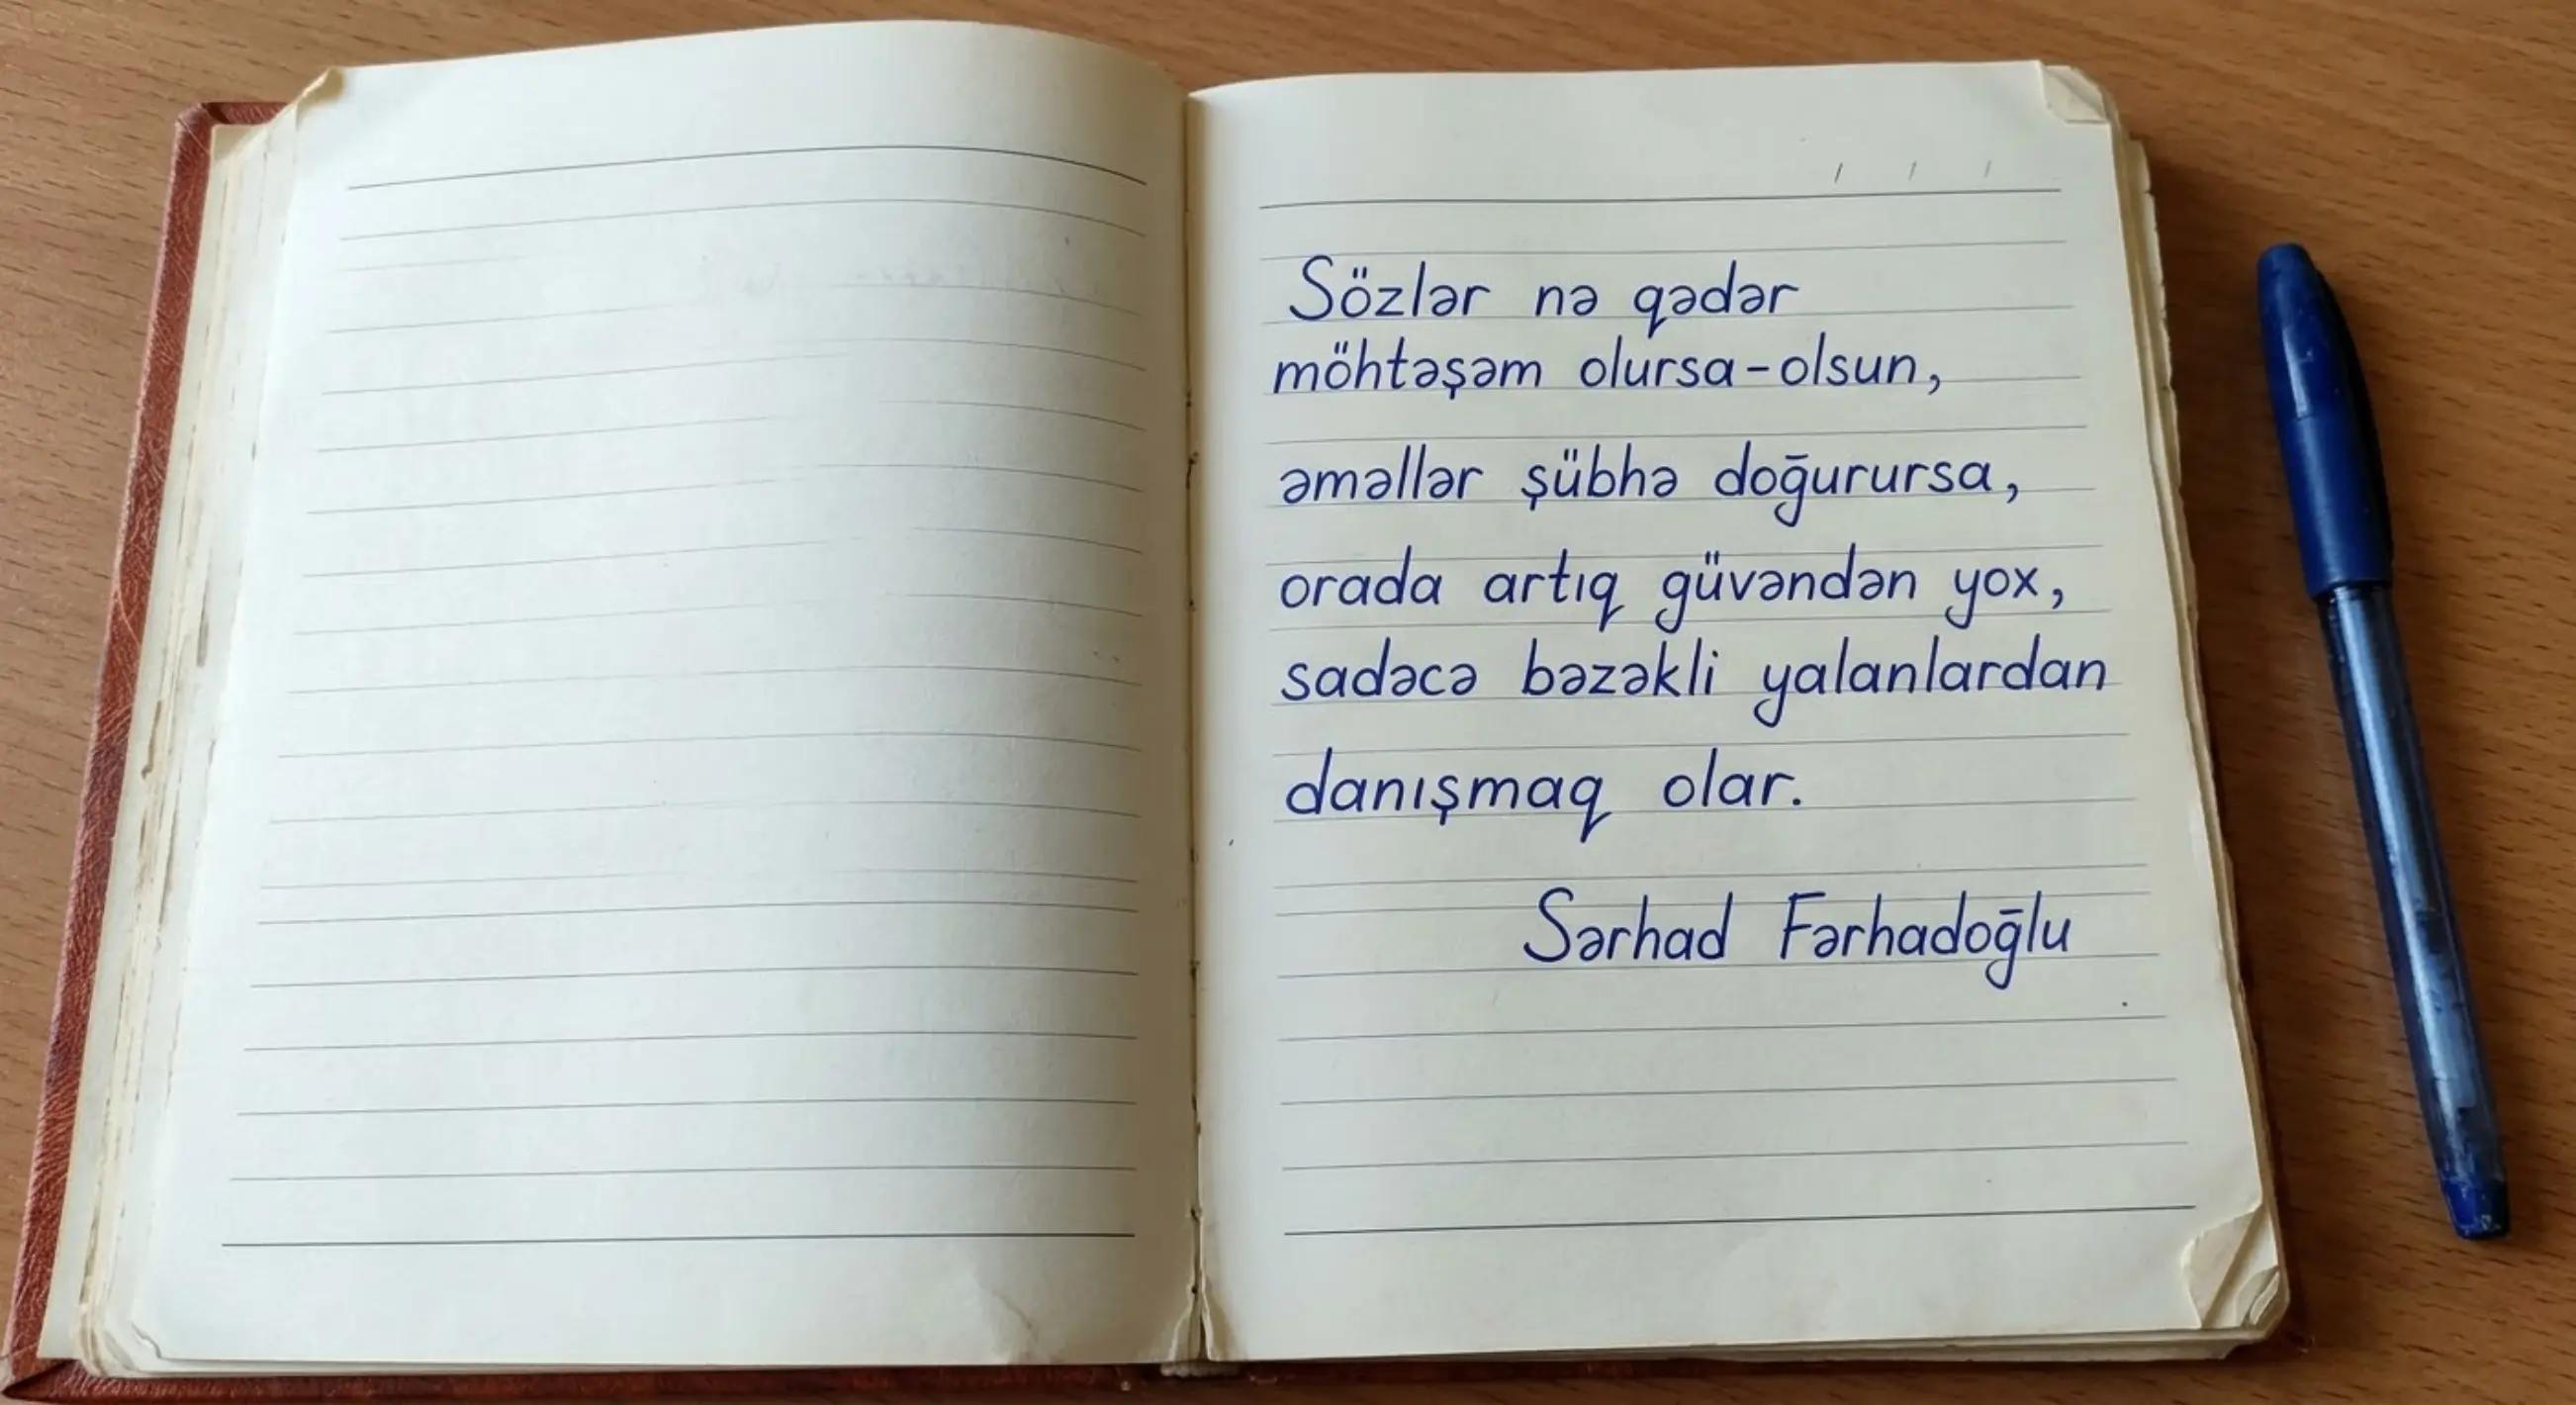 Sözlər nə qədər
möhtəşəm olursa-olsun,
əməllər şübhə doğurursa,
orada artıq güvəndən yox,
sadəcə bəzəkli yalanlardan
danışmaq olar.
Sərhad Fərhadoğlu